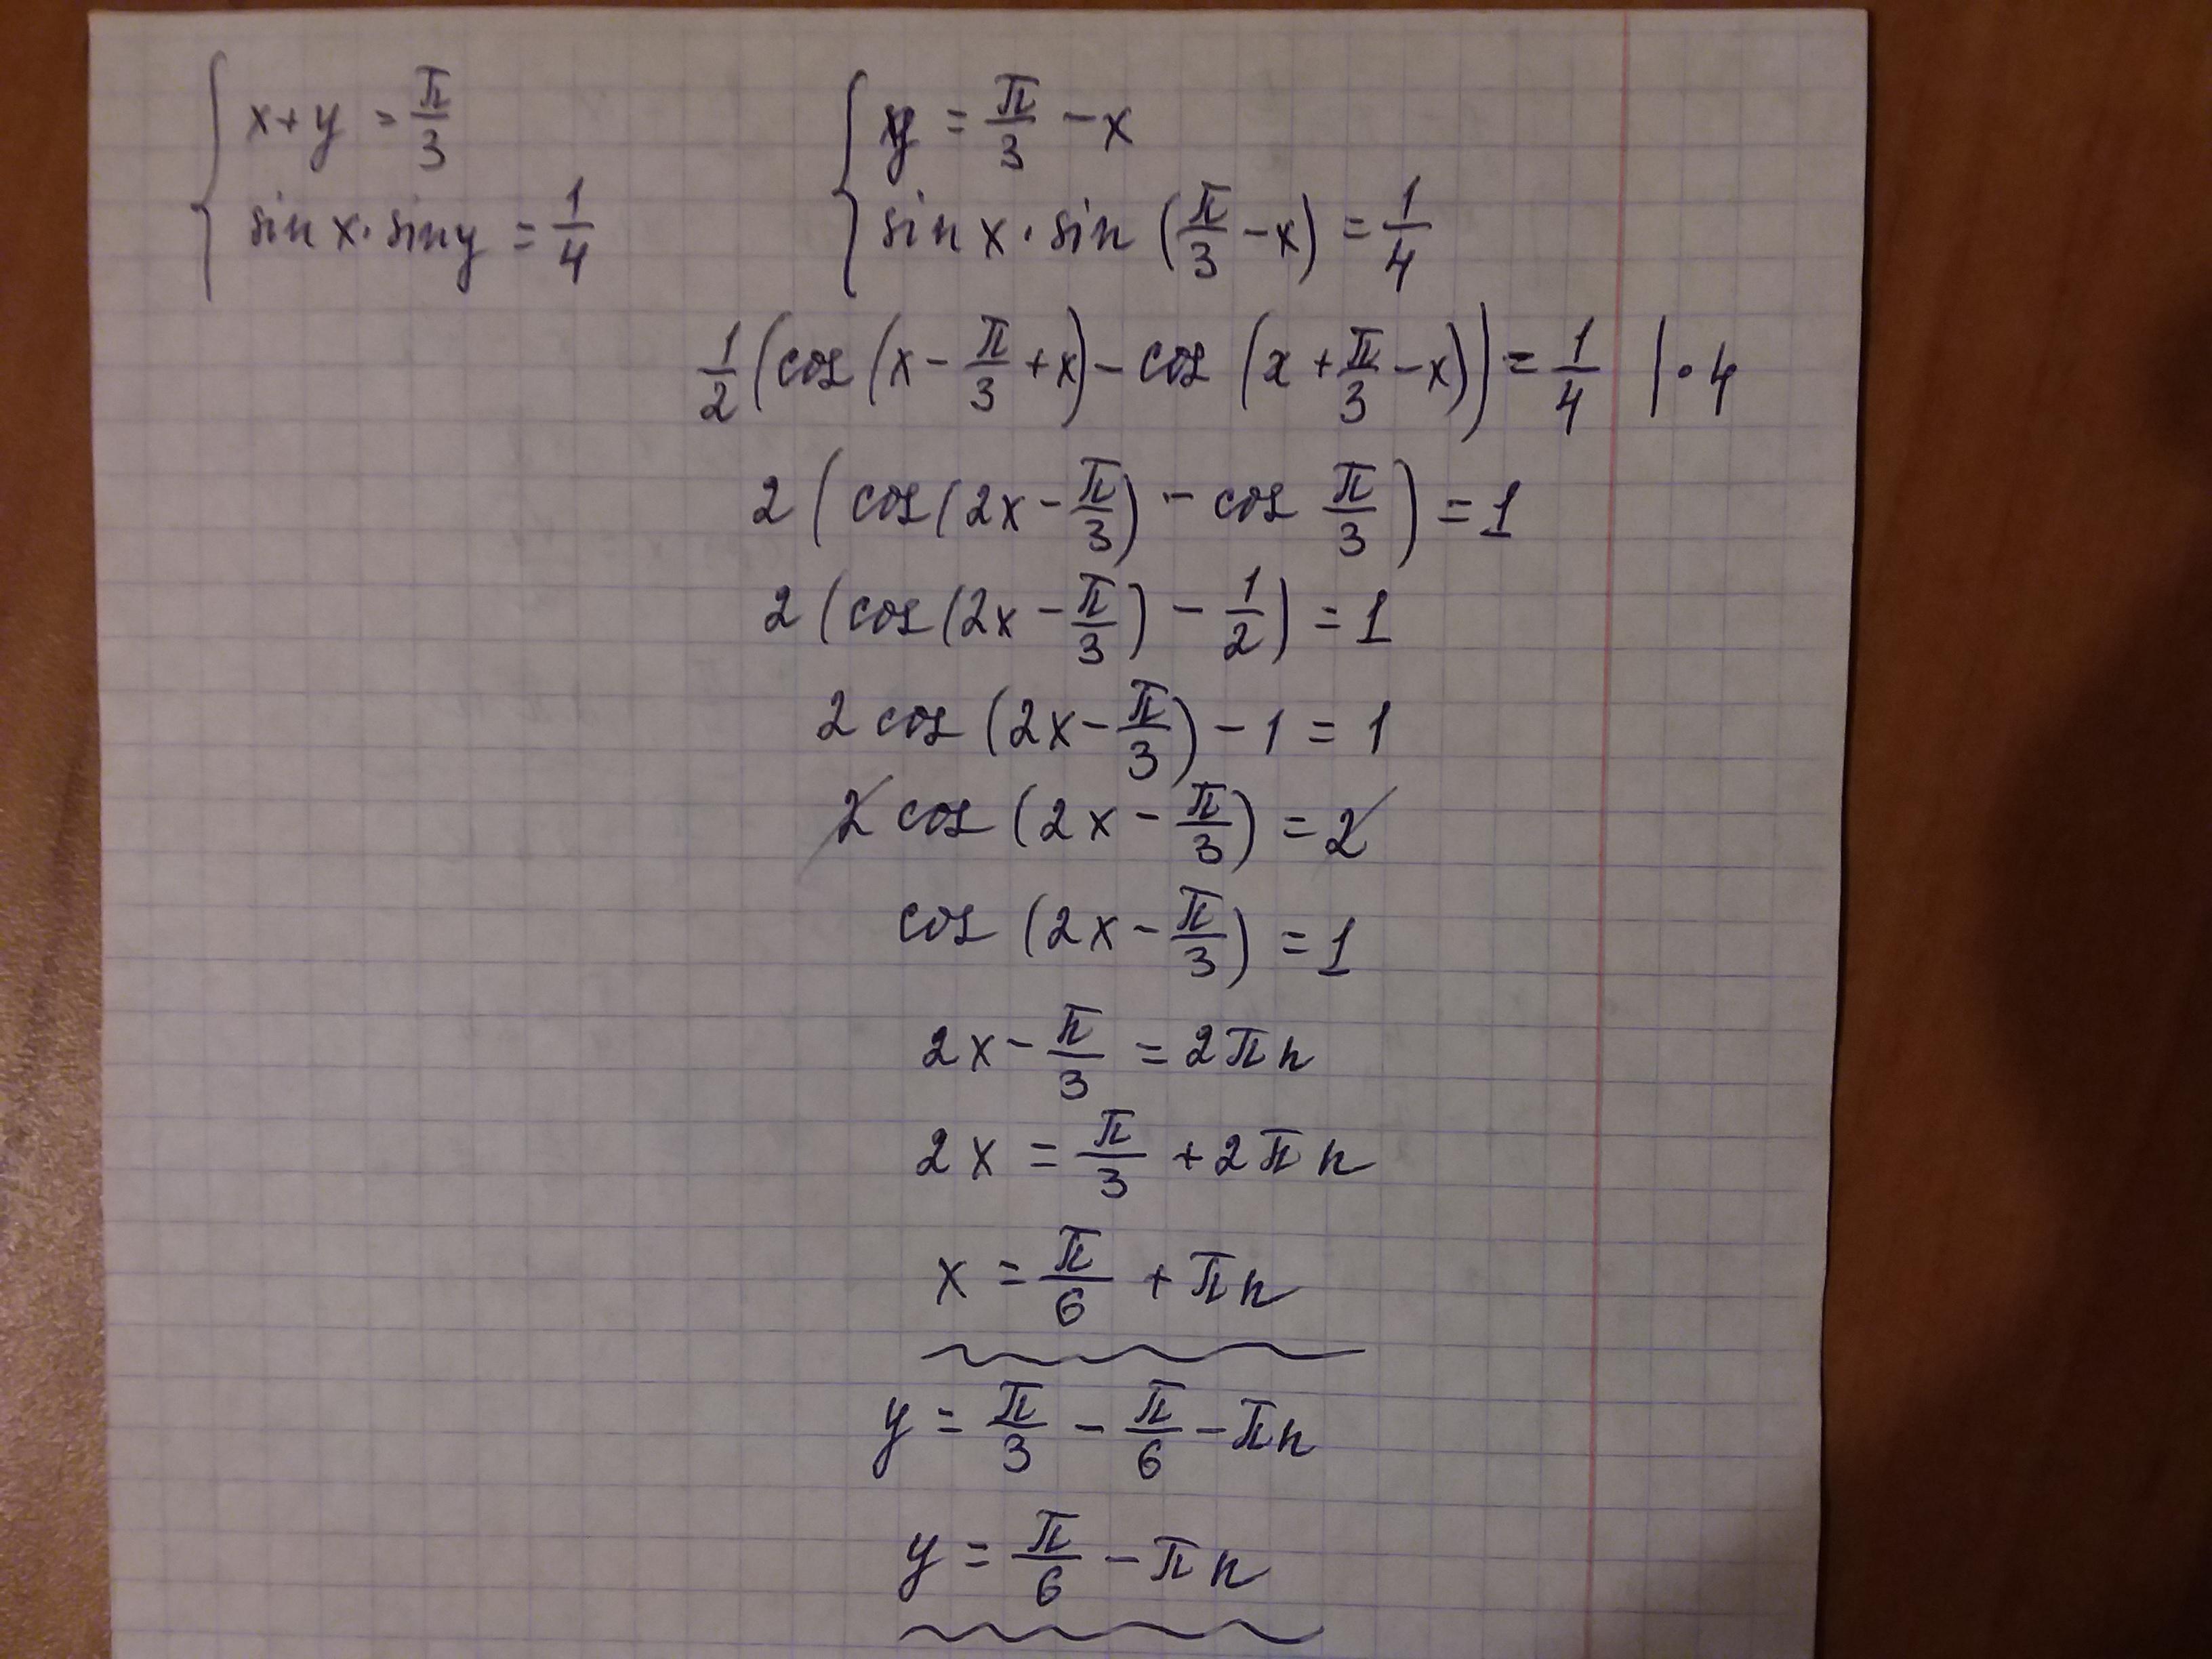 { x + y = π/3
sin x · sin y = 1/4
{ y = π/3 − x
sin x · sin (π/3 − x) = 1/4
1/2 (cos (x − π/3 + x) − cos (x + π/3 − x)) = 1/4 | · 4
2 (cos (2x − π/3) − cos π/3) = 1
2 (cos (2x − π/3) − 1/2) = 1
2 cos (2x − π/3) − 1 = 1
2 cos (2x − π/3) = 2
cos (2x − π/3) = 1
2x − π/3 = 2πn
2x = π/3 + 2πn
x = π/6 + πn
y = π/3 − π/6 − πn
y = π/6 − πn